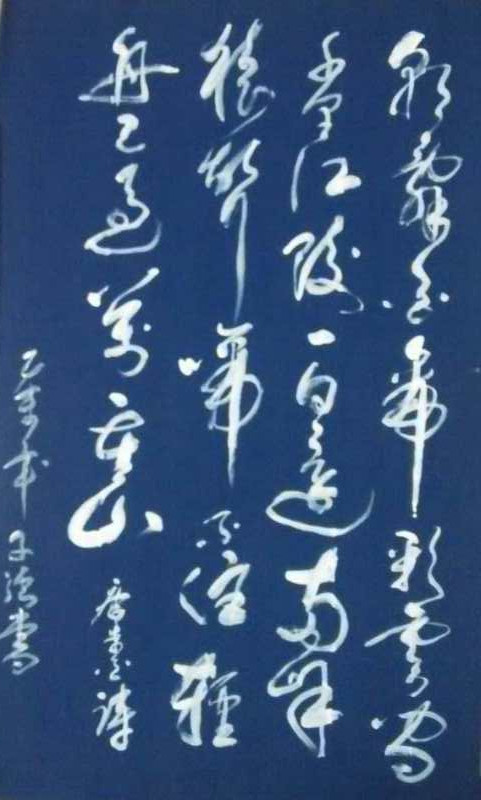 朝辭白帝彩雲間
千里江陵一日還兩岸
猿聲啼不住輕
舟已過萬重山 李白詩
乙未年 書